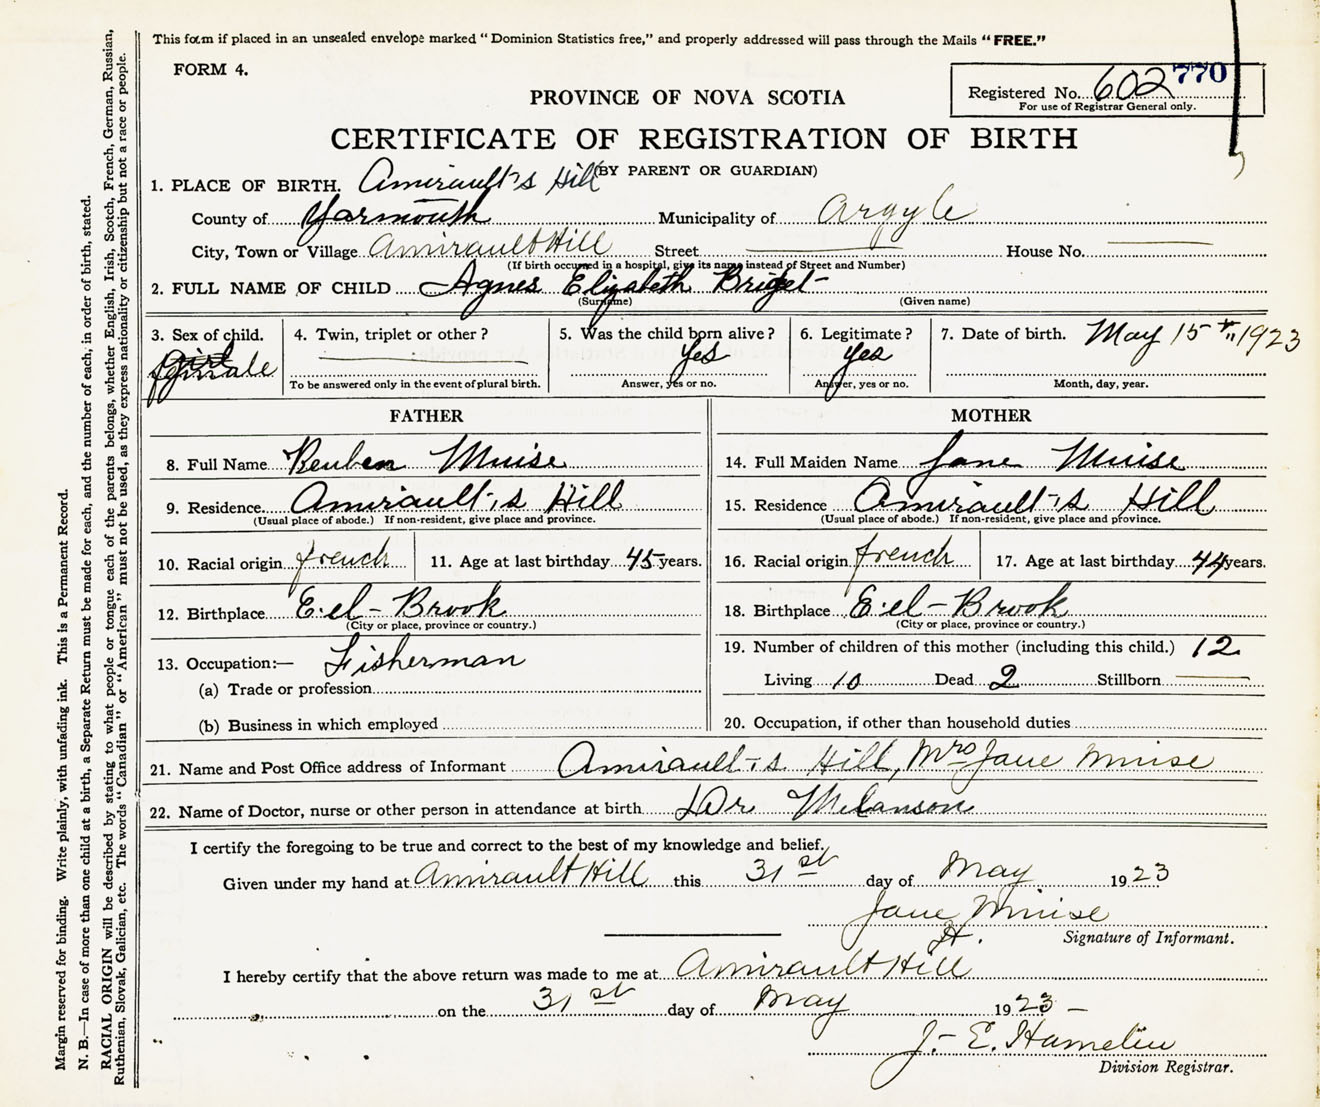 This form if placed in an unsealed envelope marked "Dominion Statistics free," and properly addressed will pass through the Mails "FREE."
FORM 4.
Registered No. 602 770
For use of Registrar General only.
PROVINCE OF NOVA SCOTIA
CERTIFICATE OF REGISTRATION OF BIRTH
(BY PARENT OR GUARDIAN)
1. PLACE OF BIRTH. Amirault's Hill
County of Yarmouth Municipality of Argyle
City, Town or Village Amirault Hill Street House No.
(If birth occurred in a hospital, give its name instead of Street and Number)
2. FULL NAME OF CHILD Agnes Elizabeth Briget
(Surname) (Given name)
3. Sex of child. 4. Twin, triplet or other? 5. Was the child born alive? 6. Legitimate? 7. Date of birth. May 15th 1923
girl
female Yes Yes
To be answered only in the event of plural birth. Answer, yes or no. Answer, yes or no. Month, day, year.
FATHER
8. Full Name Reuben Muise
9. Residence. Amirault-s Hill
(Usual place of abode.) If non-resident, give place and province.
10. Racial origin french 11. Age at last birthday 45 years.
12. Birthplace Eel-Brook
(City or place, province or country.)
13. Occupation:— Fisherman
(a) Trade or profession
(b) Business in which employed
MOTHER
14. Full Maiden Name Jane Muise
15. Residence Amirault-s Hill
(Usual place of abode.) If non-resident, give place and province.
16. Racial origin french 17. Age at last birthday 44 years.
18. Birthplace Eel-Brook
(City or place, province or country.)
19. Number of children of this mother (including this child.) 12
Living 10 Dead 2 Stillborn
20. Occupation, if other than household duties
21. Name and Post Office address of Informant Amirault-s Hill, Mrs Jane Muise
22. Name of Doctor, nurse or other person in attendance at birth Dr Melanson
I certify the foregoing to be true and correct to the best of my knowledge and belief.
Given under my hand at Amirault Hill this 31st day of May 1923
Jane Muise
H.
Signature of Informant.
I hereby certify that the above return was made to me at Amirault Hill
on the 31st day of May 1923 -
J.- E. Hamelin
Division Registrar.
Margin reserved for binding. Write plainly, with unfading ink. This is a Permanent Record.
N. B.—In case of more than one child at a birth, a Separate Return must be made for each, and the number of each, in order of birth, stated.
RACIAL ORIGIN will be described by stating to what people or tongue each of the parents belongs, whether English, Irish, Scotch, French, German, Russian,
Ruthenian, Slovak, Galician, etc. The words "Canadian" or "American" must not be used, as they express nationality or citizenship but not a race or people.